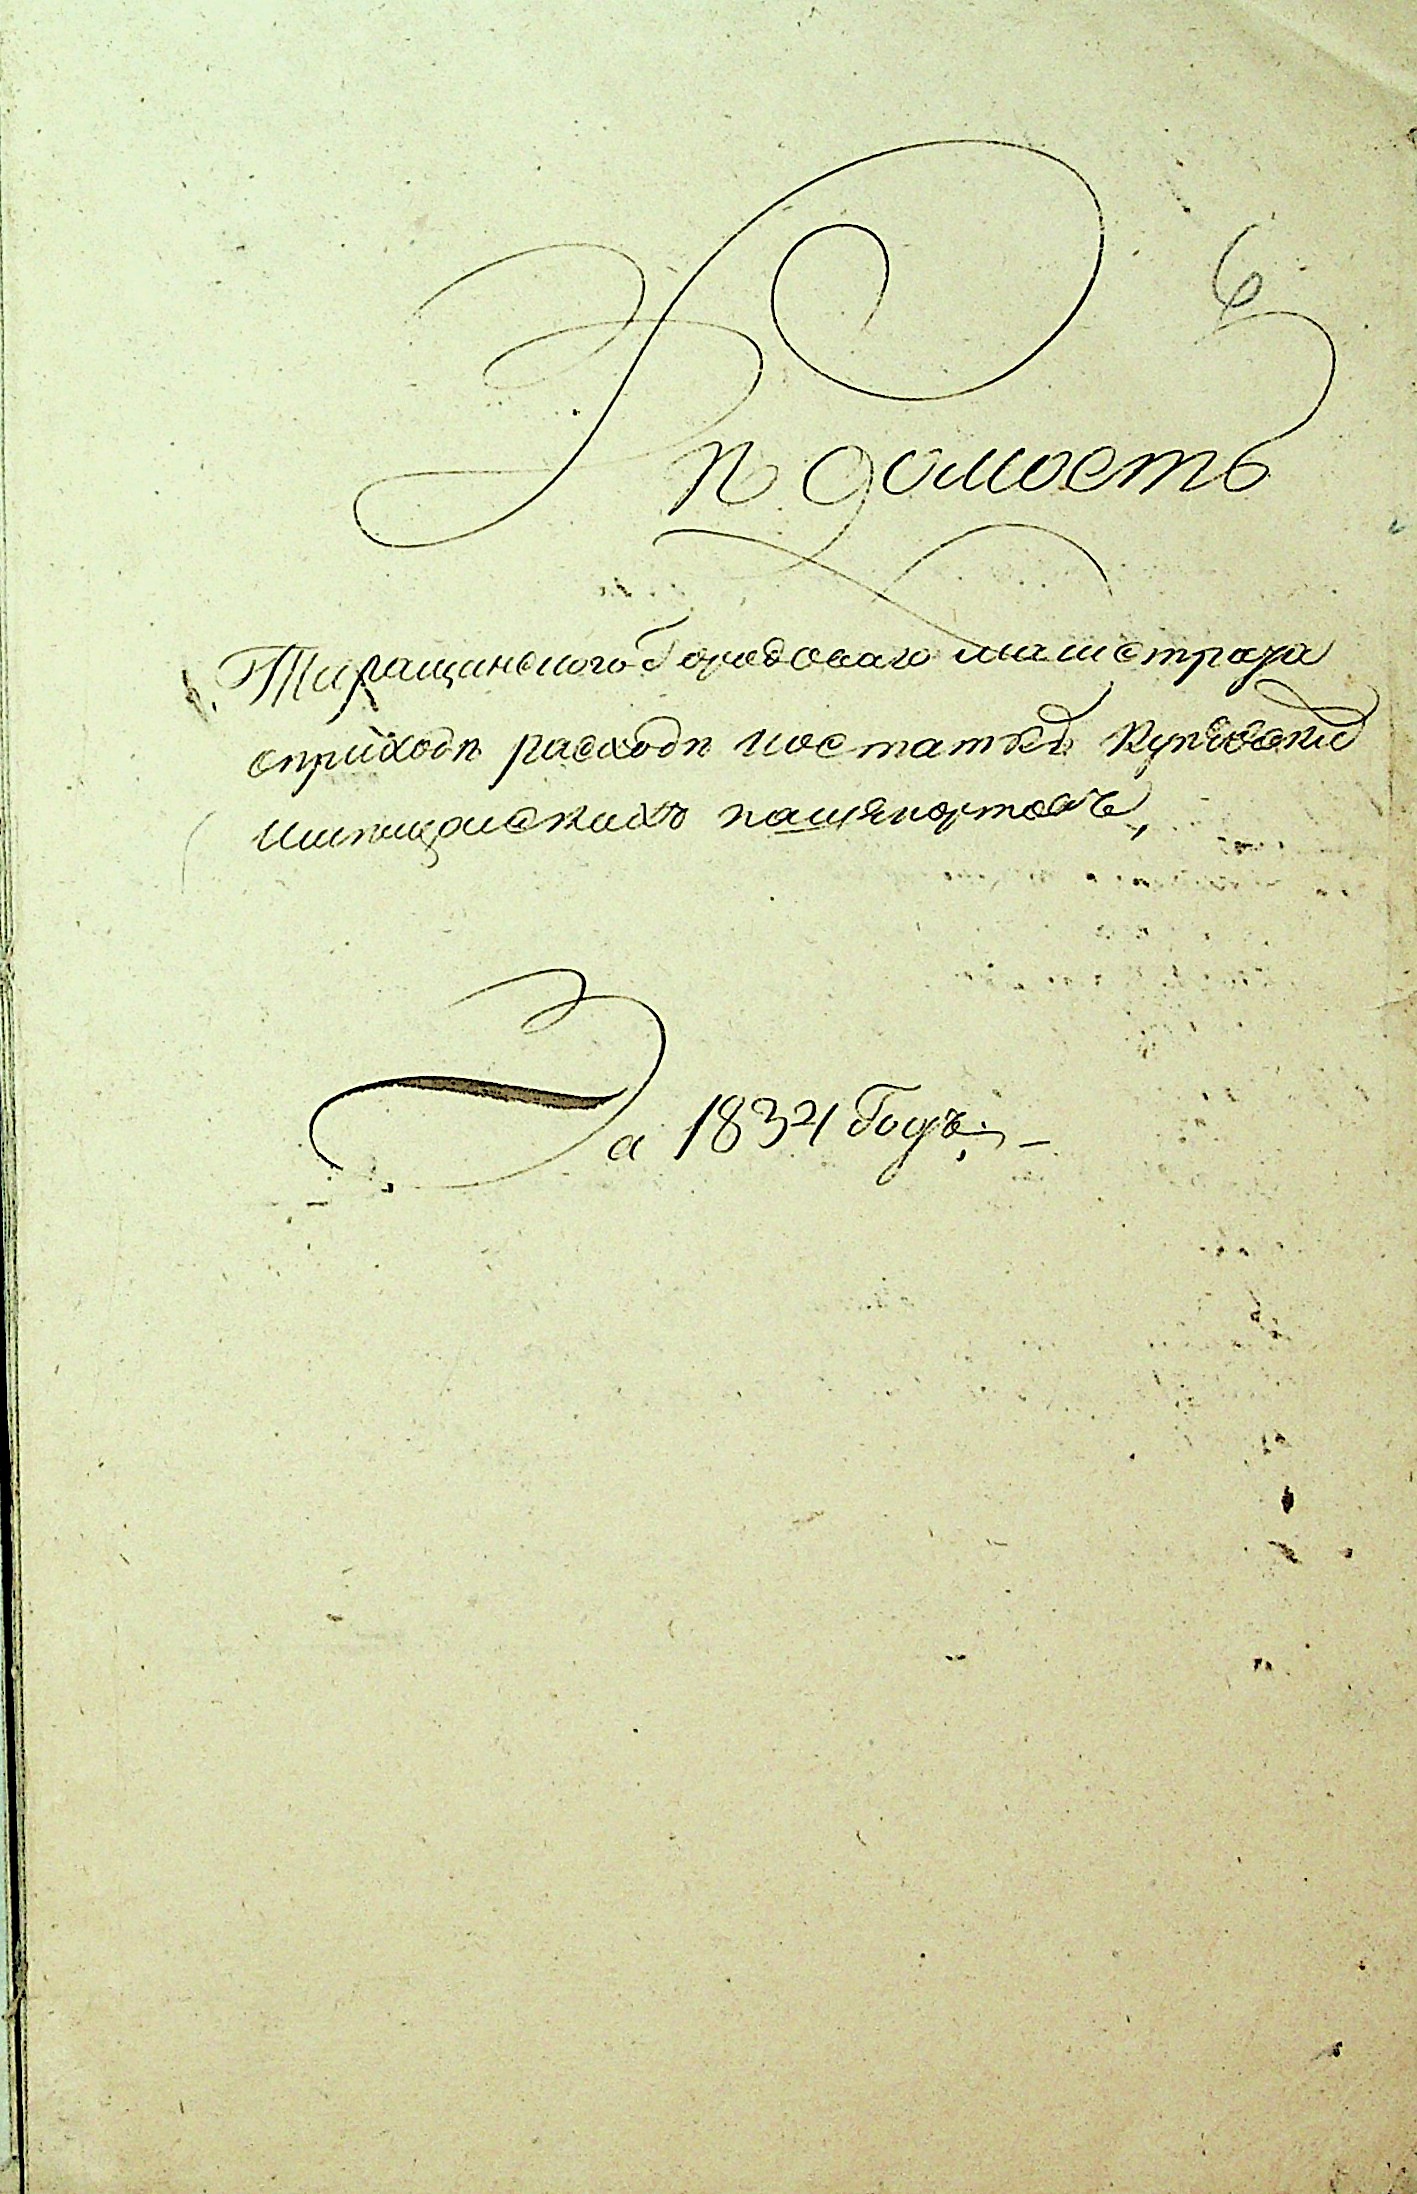 6
Вѣдомость
Таращинского Городоваго магистрата
оприходѣ расходѣ иостаткѣ купѣческих
имѣщанскихъ пашпортовъ,
За 1834 Годъ. —